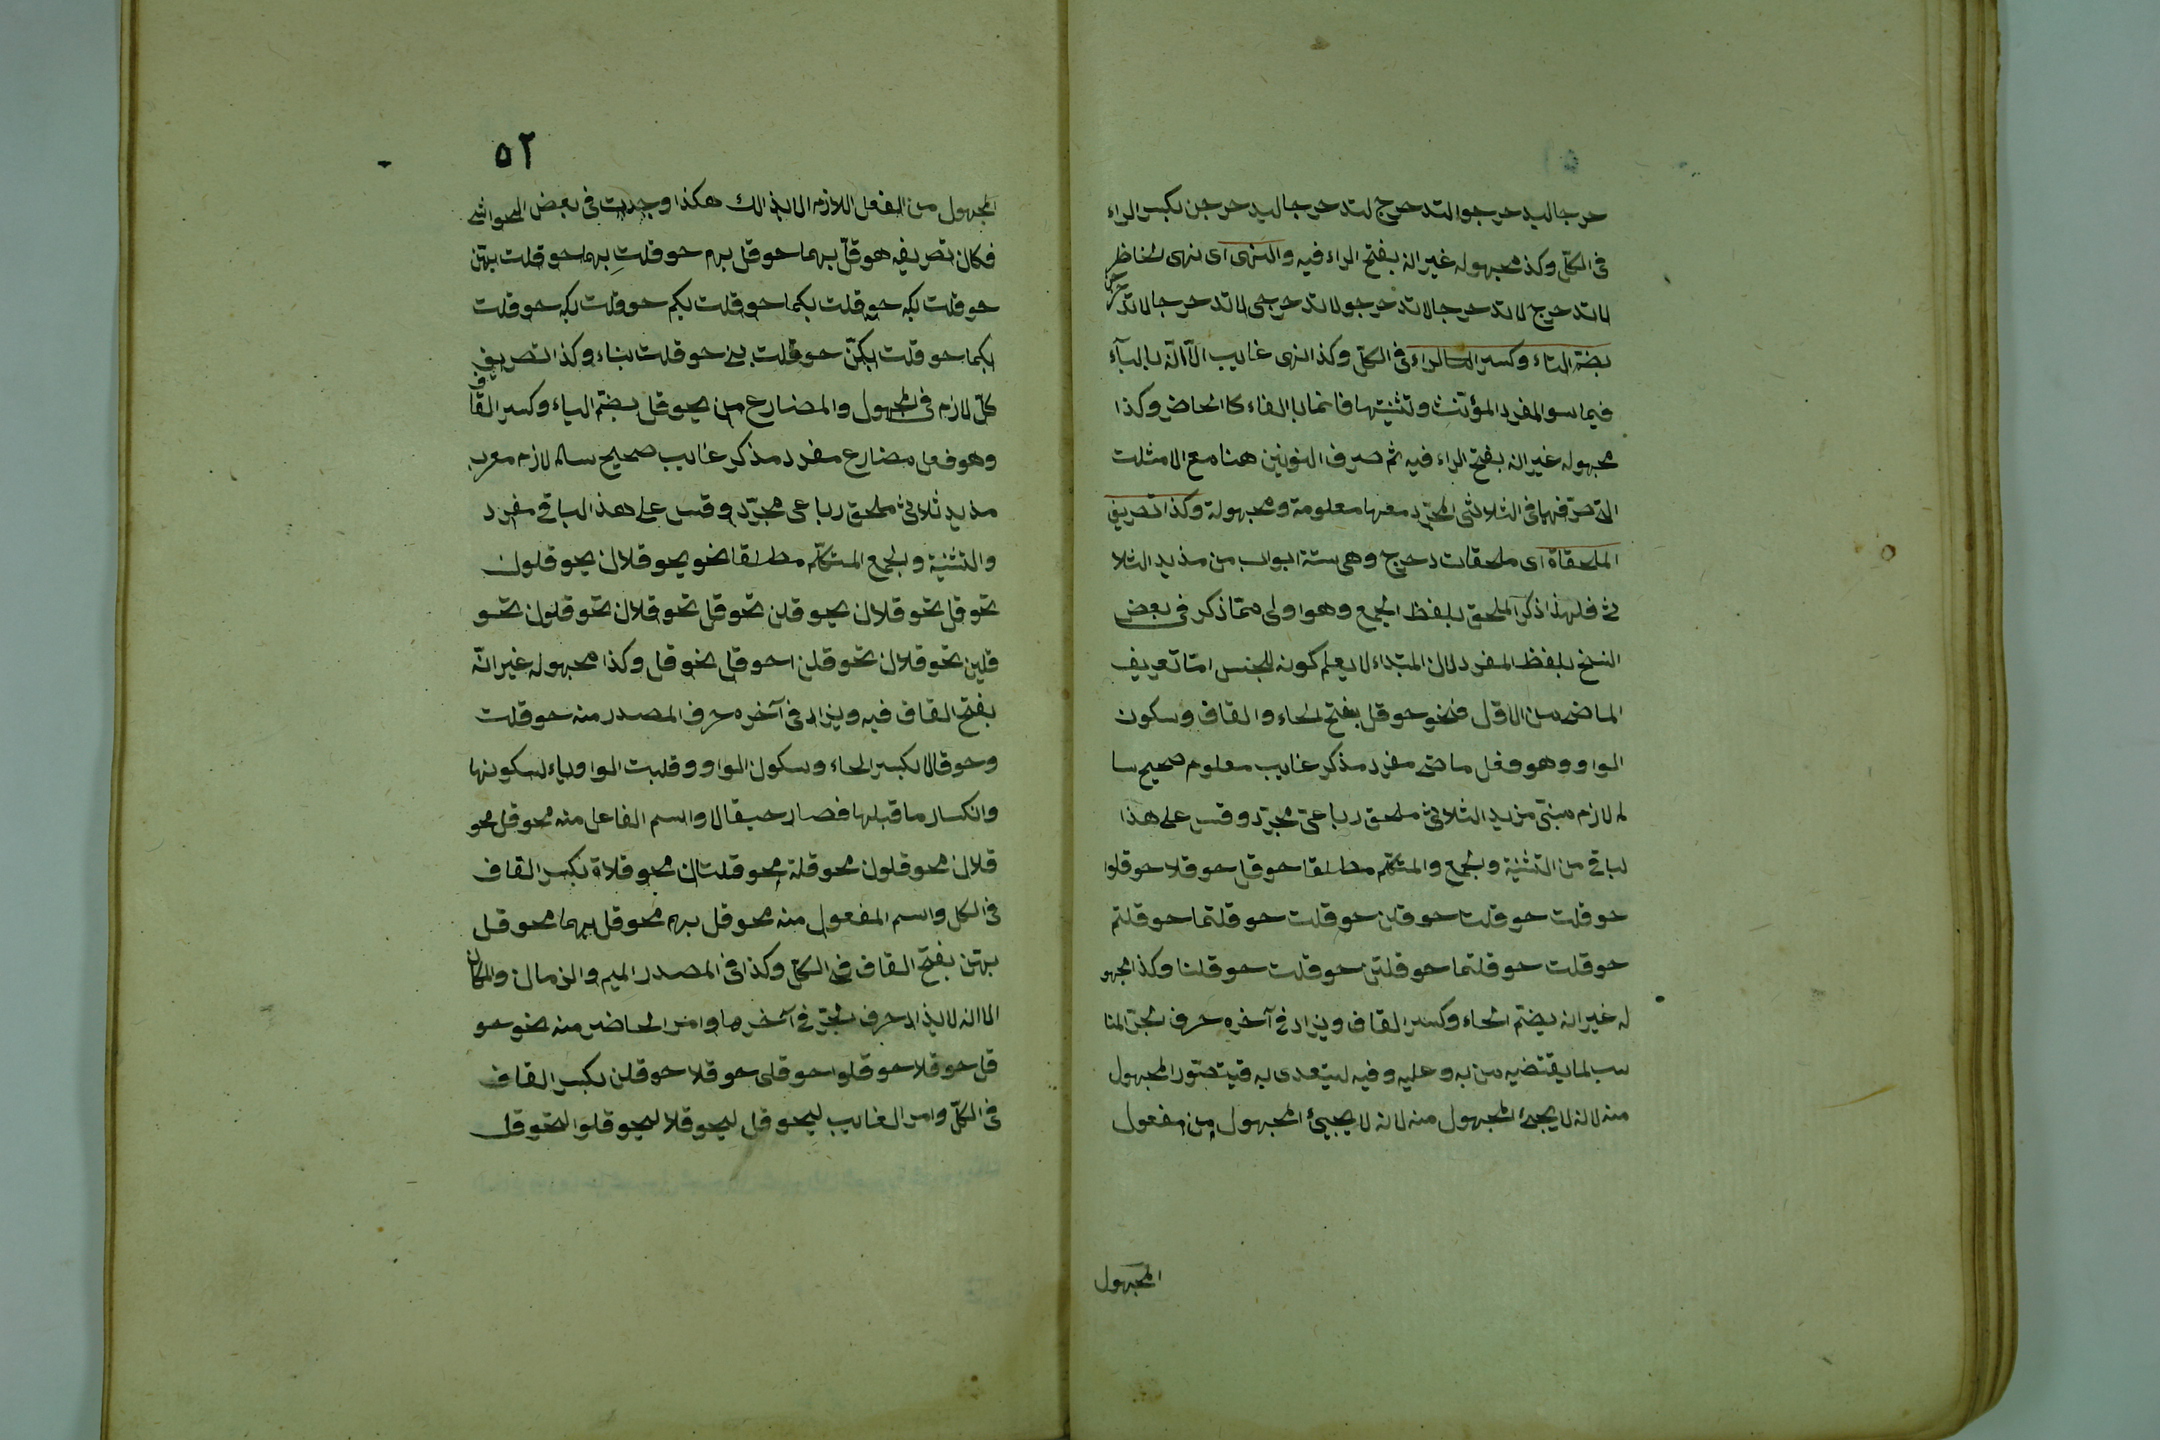 حرجا ليدحرجوا لتدحرج لتدحرجا ليدحرجن بكسر الراء
فى الكلّ وكذ مجهوله غير انه بفتح الراء فيه والنهى اى نهى المخاطر
لا تدحرج لا تدحرجا لا تدحرجو لا تدحرجى لا تدحرجا لا تدحرجن
بضمّ التاء وكسر الراء فى الكلّ وكذا نهى غايب الّا انّه بالياء
فيما سو المفرد المؤنّث وتثنيتها فانهما بالتاء كالحاضر وكذا
مجهوله غير انه بفتح الراء فيه ثم صرف النونين هنا مع الامثلت
التى صرّفهما فى الثلاثى المجرّد معها معلومة ومجهولة وكذا تصريف
الملحقاة اى ملحقات دحرج وهى ستة ابواب من مذيد الثلا
ثى فلهذا ذكر الملحق بلفظ الجمع وهو اولى ممّا ذكر فى بعض
النسخ بلفظ المفرد لان المبتداء لا يعلم كونه للجنس امّا تعريف
الماضى من الاوّل فنحو حوقل بفتح الحاء والقاف وسكون
الواو وهو فعل ماضى مفرد مذكر غايب معلوم صحيح سا
لم لازم مبنىّ مزيد الثلاثى ملحق رباعىّ مجرّد وقس على هذا
لباقى من التثنية والجمع والمتكلّم مطلقا حوقل حوقلا حوقلوا
حوقلت حوقلتا حوقلن حوقلت حوقلتما حوقلتم
حوقلت حوقلتما حوقلتنّ حوقلت حوقلنا وكذ المجهو
له غير انه بضمّ الحاء وكسر القاف ويزاد فى آخره حرف الجرّ المنا
سب لما يقتضيه من به وعليه وفيه ليتعدى به فيتصوّر المجهول
منه لانه لا يجئ المجهول منه لانه لا يجيئ المجهول من مفعول
المجهول
٥٢
المجهول من الفعل اللازم الا بذالك هكذا وجدت فى بعض الحواشى
فكان تصريفه حوقل بهما حوقل بهم حوقلت بهما حوقلت بهنّ
حوقلت بكه حوقلت بكما حوقلت بكم حوقلت بكه حوقلت
بكما حوقلت بكنّ حوقلت بى حوقلت بناء وكذا تصريف
كلّ لازم فى المجهول والمضارع من يحوقل بضم الياء وكسر القاف
وهو فعل مضارع مفرد مذكر غايب صحيح سالم لازم معرب
مذيد ثلاثى ملحق رباعى مجرّد وقس على هذ الباقى مفرد
والتثنية والجمع المتكلّم مطلقا نحو يحوقلان يحوقلون
تحوقل تحوقلان يحوقلن تحوقل تحوقلان تحوقلون تحو
قلين تحوقلان تحوقلن احوقل نحوقل وكذا مجهوله غير انّه
بفتح القاف فيه ويزاد فى آخره حرف المصدر منه حوقلت
وحوقالا بكسر الحاء وسكون الواو وقلبت الواو ياء لسكونها
وانكسار ما قبلها فصار حيقالا واسم الفاعل منه محوقل محو
قلان محوقلون محوقلة محوقلتان محوقلاة بكسر القاف
فى الكل واسم المفعول منه محوقل بهم محوقل بهما محوقل
بهنّ بفتح القاف فى الكلّ وكذا فى المصدر الميم والزمان والمكان
الا انه لا يذاد حرف الجرّ فى آخرها وامر الحاضر منه نحو حو
قل حوقلا حوقلوا حوقلى حوقلا حوقلن بكسر القاف
فى الكلّ وامر الغايب ليحوقل ليحوقلا ليحوقلوا لتحوقل